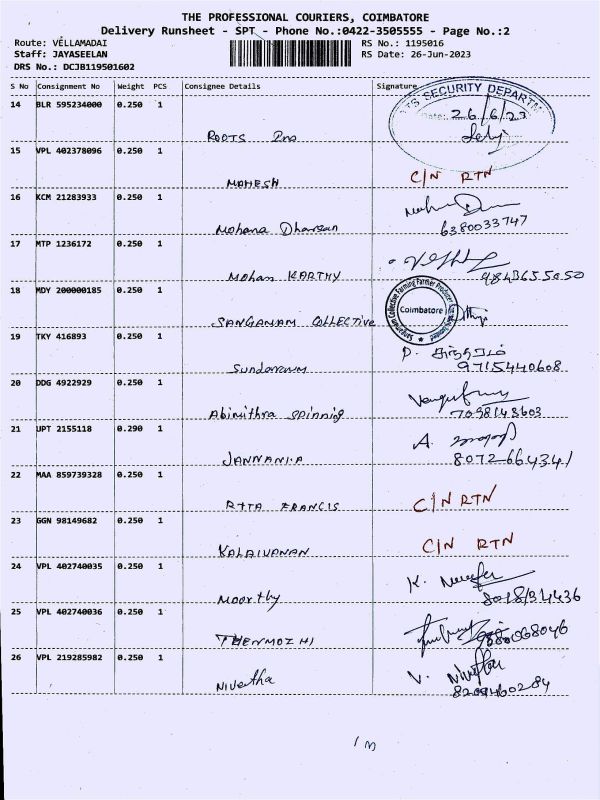 THE PROFESSIONAL COURIERS, COIMBATORE
Delivery Runsheet - SPT - Phone No.:0422-3505555 - Page No.:2
Route: VELLAMADAI RS No.: 1195016
Staff: JAYASEELAN RS Date: 26-Jun-2023
DRS No.: DCJB119501602
S No Consignment No Weight PCS Consignee Details Signature
14 BLR 595234000 0.250 1
SECURITY DEPARTM
Date: 26/6/23
ROOTS Ind
15 VPL 402378096 0.250 1
MAHESH C/N RTN
16 KCM 21283933 0.250 1
Mohana Dharsan 6380033747
17 MTP 1236172 0.250 1
Mohan KARTHY 9843655050
18 MDY 200000185 0.250 1
Collective Farming Farmer Producer
Coimbatore
SANGAMAM COLLECTIVE
19 TKY 416893 0.250 1
P.
Sundaram 9715440608
20 DDG 4922929 0.250 1
Abimithra spinning 7098143603
21 UPT 2155118 0.290 1
A.
JANNANIA 8072664341
22 MAA 859739328 0.250 1
RITA FRANCIS C/N RTN
23 GGN 98149682 0.250 1
KALAIVANAN C/N RTN
24 VPL 402740035 0.250 1
K.
Moorthy
25 VPL 402740036 0.250 1
THENMOZHI
26 VPL 219285982 0.250 1
V. Nivetha
Nivetha